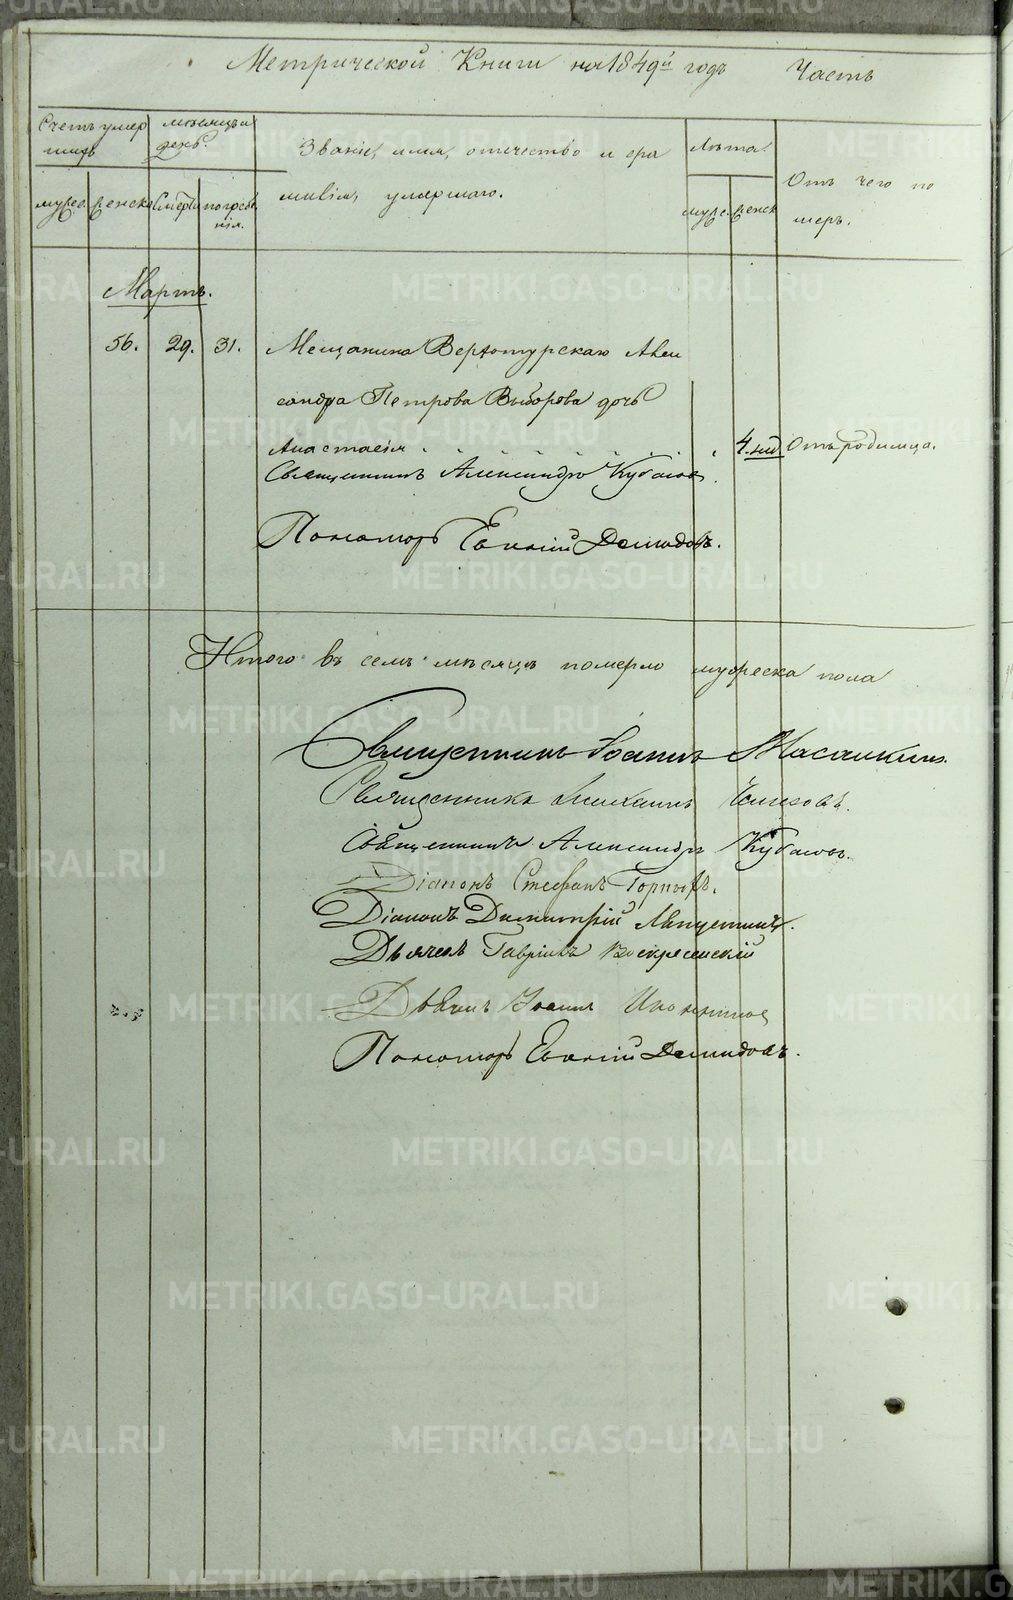 Метрической Книги на 1849й годъ Часть
Счетъ умершихъ
мѣсяцъ и день.
Званіе, имя, отечество и фамилія, умершаго.
Лѣта.
Отъ чего померъ.
муж. женска
Смерти погребенія.
муже. женск
Мартъ.
56. 29. 31. Мещанина Верхотурскаго Александра Петрова Выборова дочь
Анастасія 4. нед. Отъ родимца.
Священникъ Александръ Кубасовъ.
Пономарь Евгеній Демидовъ.
Итого въ семъ мѣсяцѣ померло мужеска пола
Священникъ Іоаннъ
Священникъ
Священникъ Александръ Кубасовъ.
Діаконъ Стефанъ
Діаконъ Димитрій
Дьячекъ Гавріилъ Воскресенскій
Дьячекъ Іоаннъ
Пономарь Евгеній Демидовъ.
METRIKI.GASO-URAL.RU